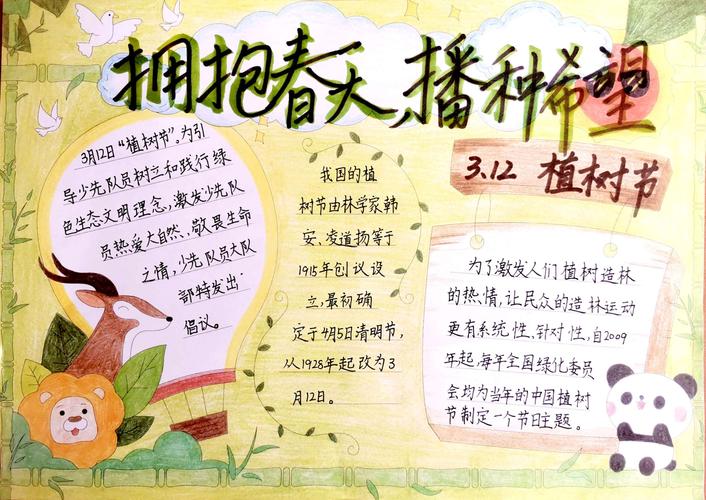 拥抱春天，播种希望
3.12 植树节
3月12日“植树节”。为引
导少先队员树立和践行绿
色生态文明理念，激发少先队
员热爱大自然、敬畏生命
之情，少先队员大队
部特发出
倡议。
我国的植
树节由林学家韩
安、凌道扬等于
1915年创议设
立，最初确
定于4月5日清明节，
从1928年起改为3
月12日。
为了激发人们植树造林
的热情，让民众的造林运动
更有系统性、针对性，自2009
年起，每年全国绿化委员
会均为当年的中国植树
节制定一个节日主题。